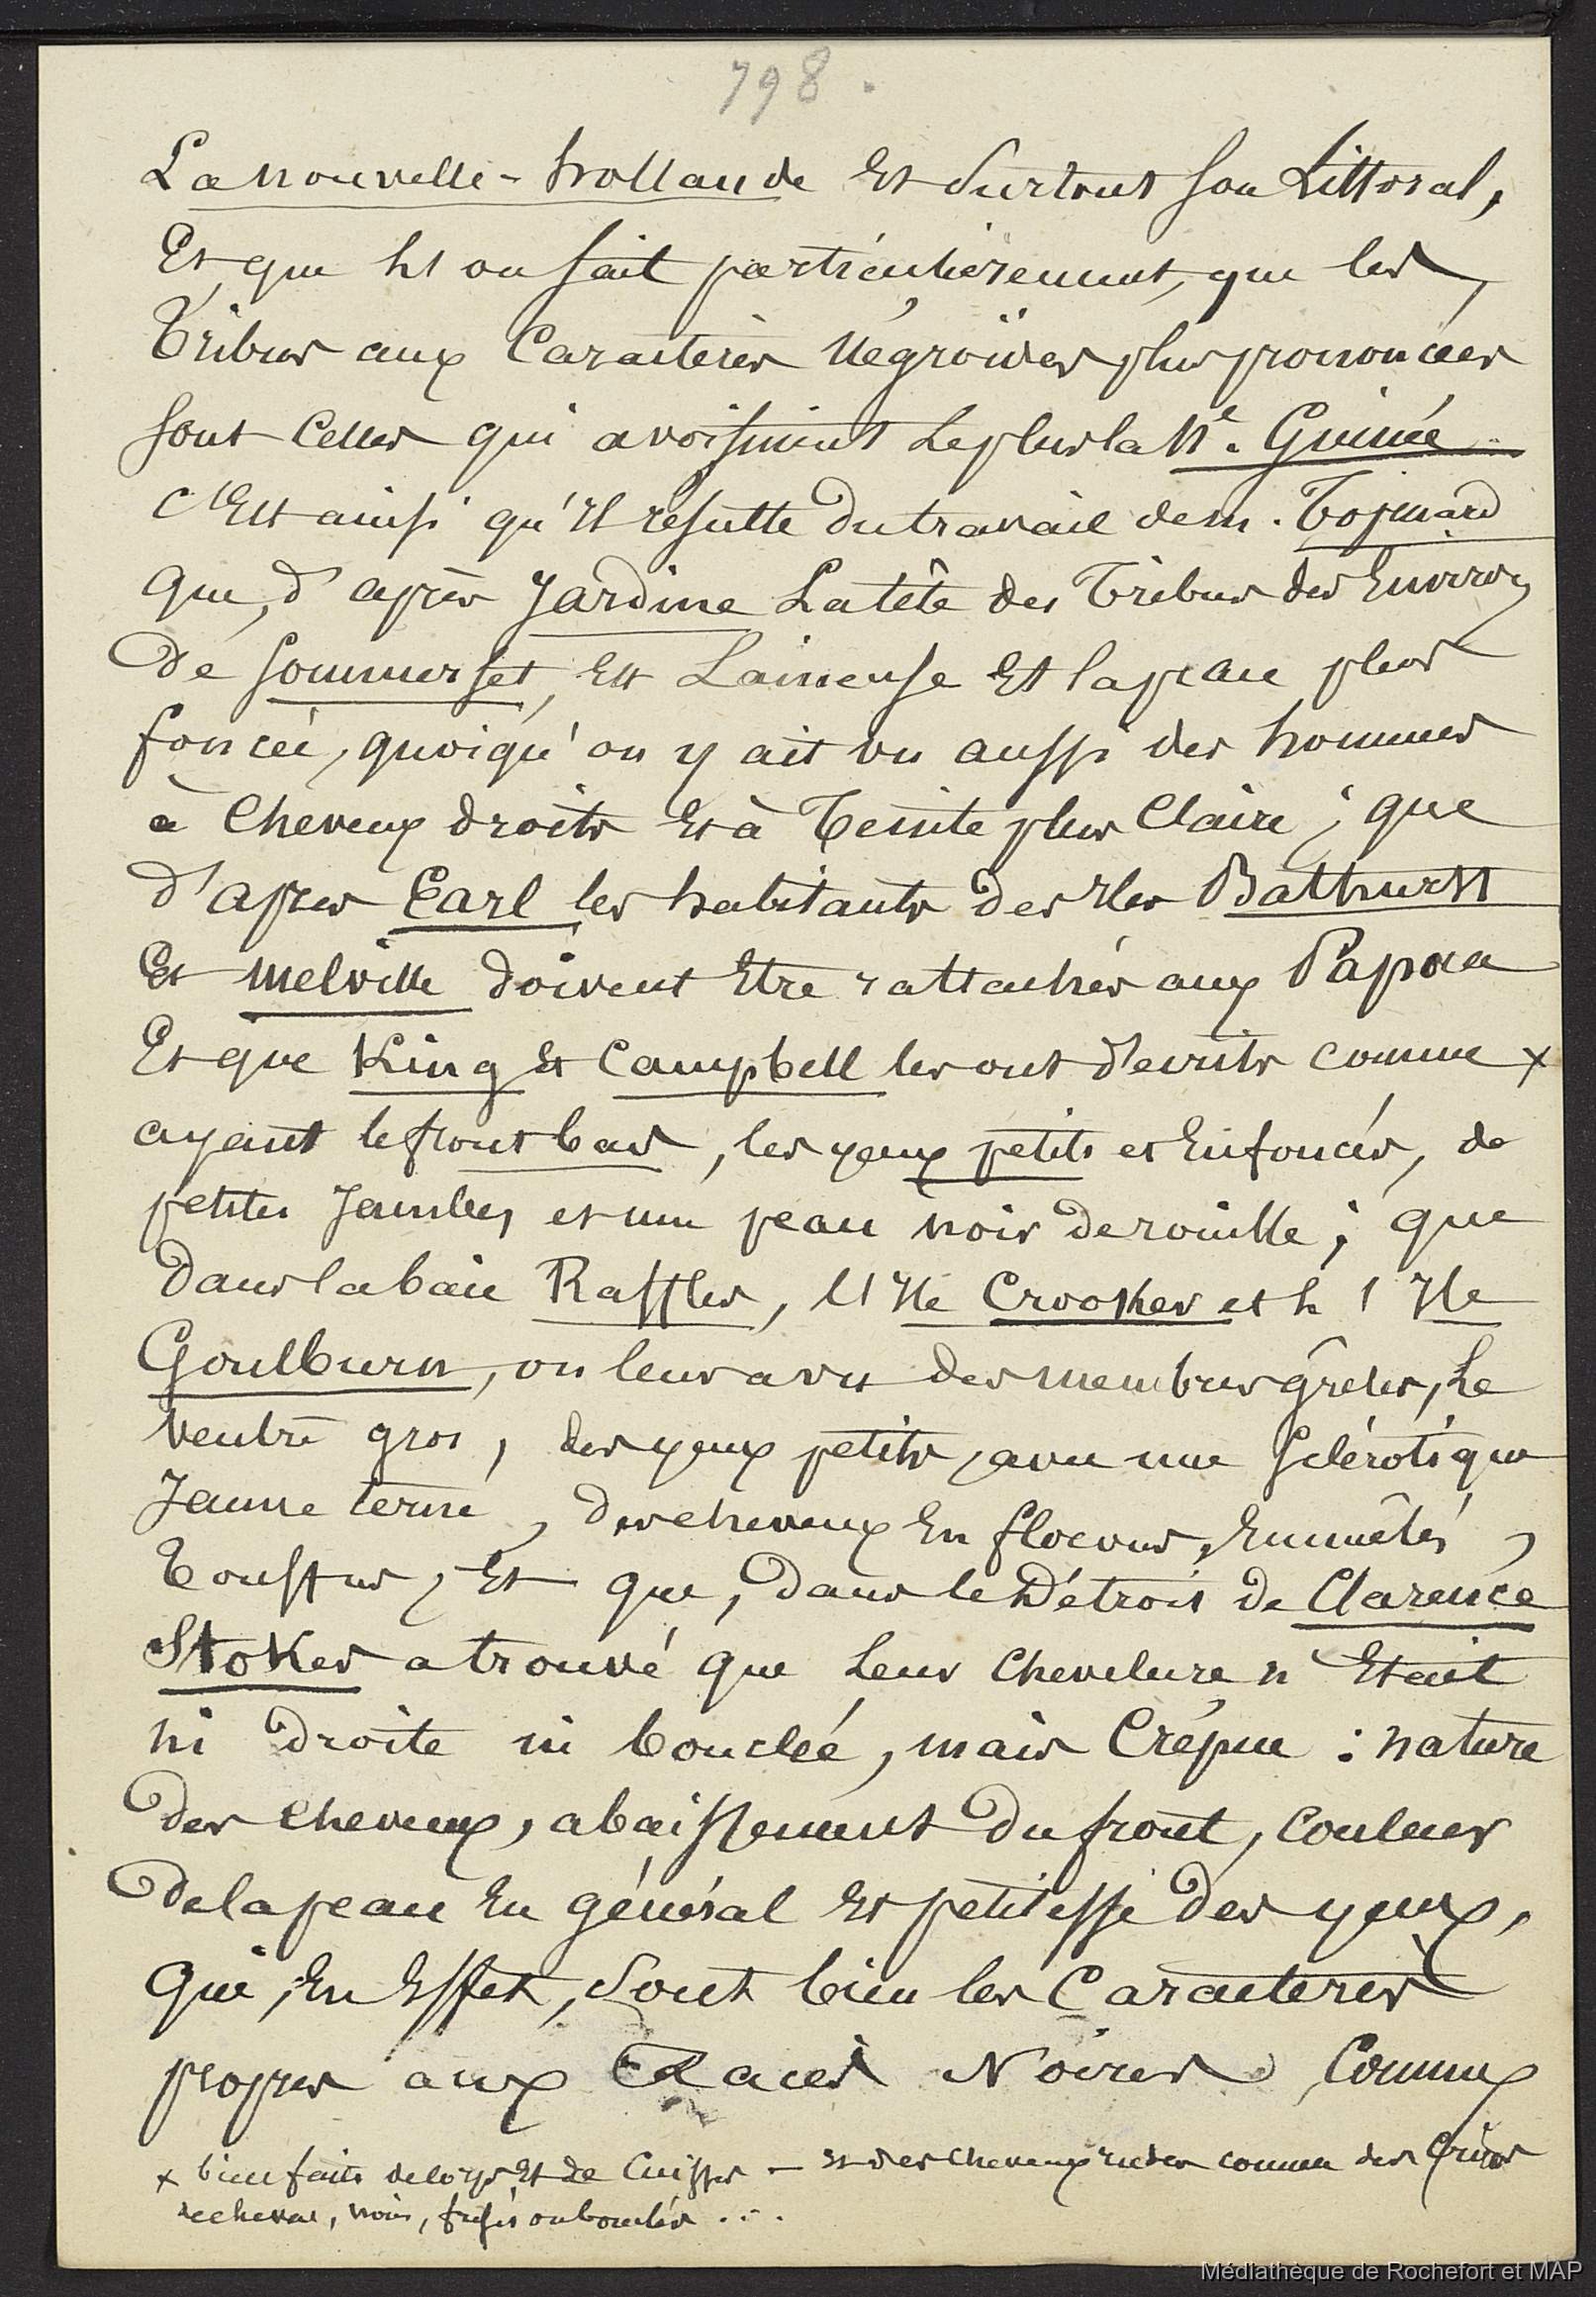 798.
La nouvelle-hollande Et Surtout son Littoral,
Et que l'on sait particulièrement, que les
Tribus aux Caractères Négroïdes plus prononcées
sont Celles qui avoisinent le plus la Nle. Guinée
c'Est ainsi qu'Il résulte du travail de m. Topinard
que, d'après Jardine La tête des Tribus des Environs
de Sommerset, Est Laineuse Et la peau plus
foncée, quoiqu'on y ait vu aussi des hommes
à Cheveux droits Et à Teinte plus Claire ; que
d'après Earl les habitants des Iles Bathurst
Et Melville doivent Etre rattachés aux Papoua
Et que King Et Campbell les ont décrits comme x
ayant le front bas, les yeux petits et Enfoncés, de
petites Jambes et une peau noir de rouille ; que
Dans la baie Raffles, l'Ile Crooker et l'Ile
Goulburn, on leur a vu des membres grêles, Le
Ventre gros, des yeux petits, avec une Sclérotique
Jaune terne, des cheveux En flocons, Emmêlés,
Touffus ; Et que, Dans le Détroit de Clarence
Stokes a trouvé que leur Chevelure n'Etait
ni Droite ni bouclée, mais Crépue : nature
des Cheveux, abaissement du front, Couleur
de la peau En général Et petitesse des yeux,
qui, En Effet, Sont bien les Caractères
propres aux Races Noires, Comme
x bien faits de corps Et de Cuisses — Et des Cheveux rudes comme des Crins
de cheval, noirs, frisés ou bouclés . . .
Médiathèque de Rochefort et MAP